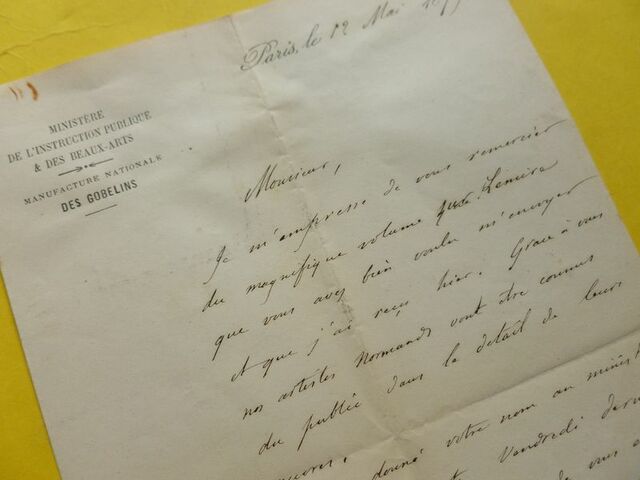 Paris, le 12 Mai
MINISTÈRE
DE L'INSTRUCTION PUBLIQUE
& DES BEAUX-ARTS
MANUFACTURE NATIONALE
DES GOBELINS
Monsieur,
Je m'empresse de vous remercier
du magnifique volume
que vous avez bien voulu m'envoyer
et que j'ai reçu hier. Grace à vous
nos artistes Normands vont être connus
du public dans le detail de leurs
donné votre nom au minist
Vendredi
de vous